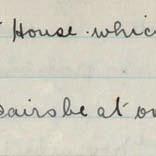 House. which
be at on